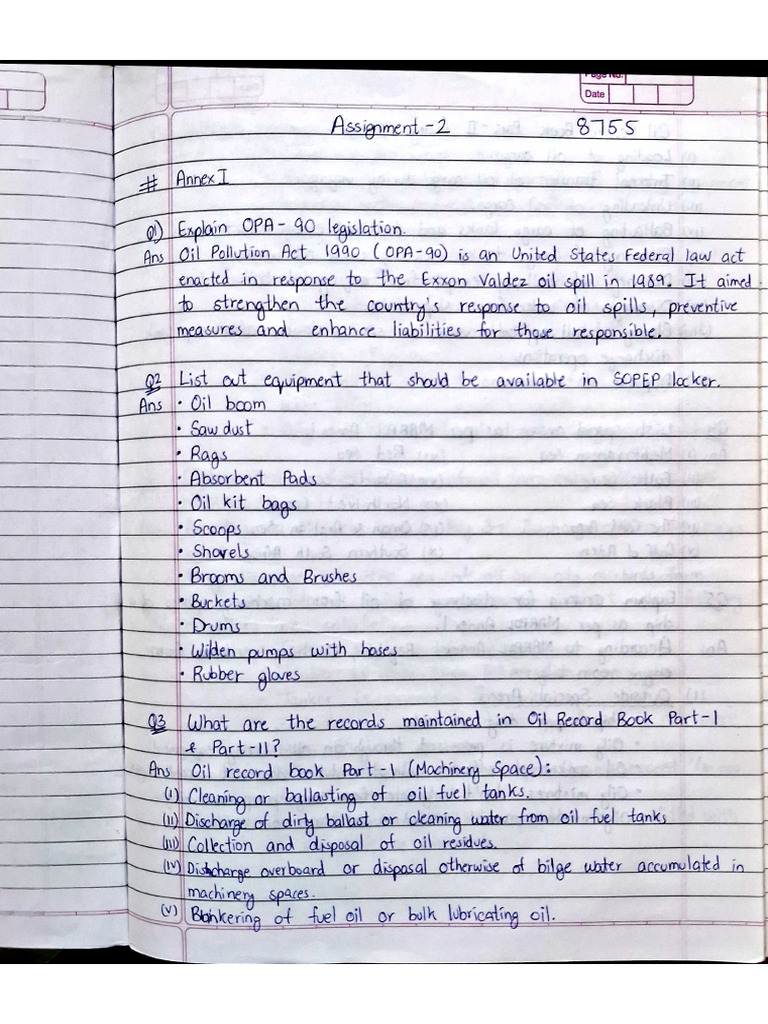 Page No.
Date
Assignment-2 8755
# Annex I
Q1) Explain OPA-90 legislation.
Ans Oil Pollution Act 1990 (OPA-90) is an United States Federal law act
enacted in response to the Exxon Valdez oil spill in 1989. It aimed
to strengthen the country's response to oil spills, preventive
measures and enhance liabilities for those responsible.
Q2 List out equipment that should be available in SOPEP locker.
Ans • Oil boom
• Saw dust
• Rags
• Absorbent Pads
• Oil kit bags
• Scoops
• Shovels
• Brooms and Brushes
• Buckets
• Drums
• Wilden pumps with hoses
• Rubber gloves
Q3 What are the records maintained in Oil Record Book Part-I
& Part-II?
Ans Oil record book Part-I (Machinery Space):
(i) Cleaning or ballasting of oil fuel tanks.
(ii) Discharge of dirty ballast or cleaning water from oil fuel tanks
(iii) Collection and disposal of oil residues.
(iv) Discharge overboard or disposal otherwise of bilge water accumulated in
machinery spaces.
(v) Bunkering of fuel oil or bulk lubricating oil.